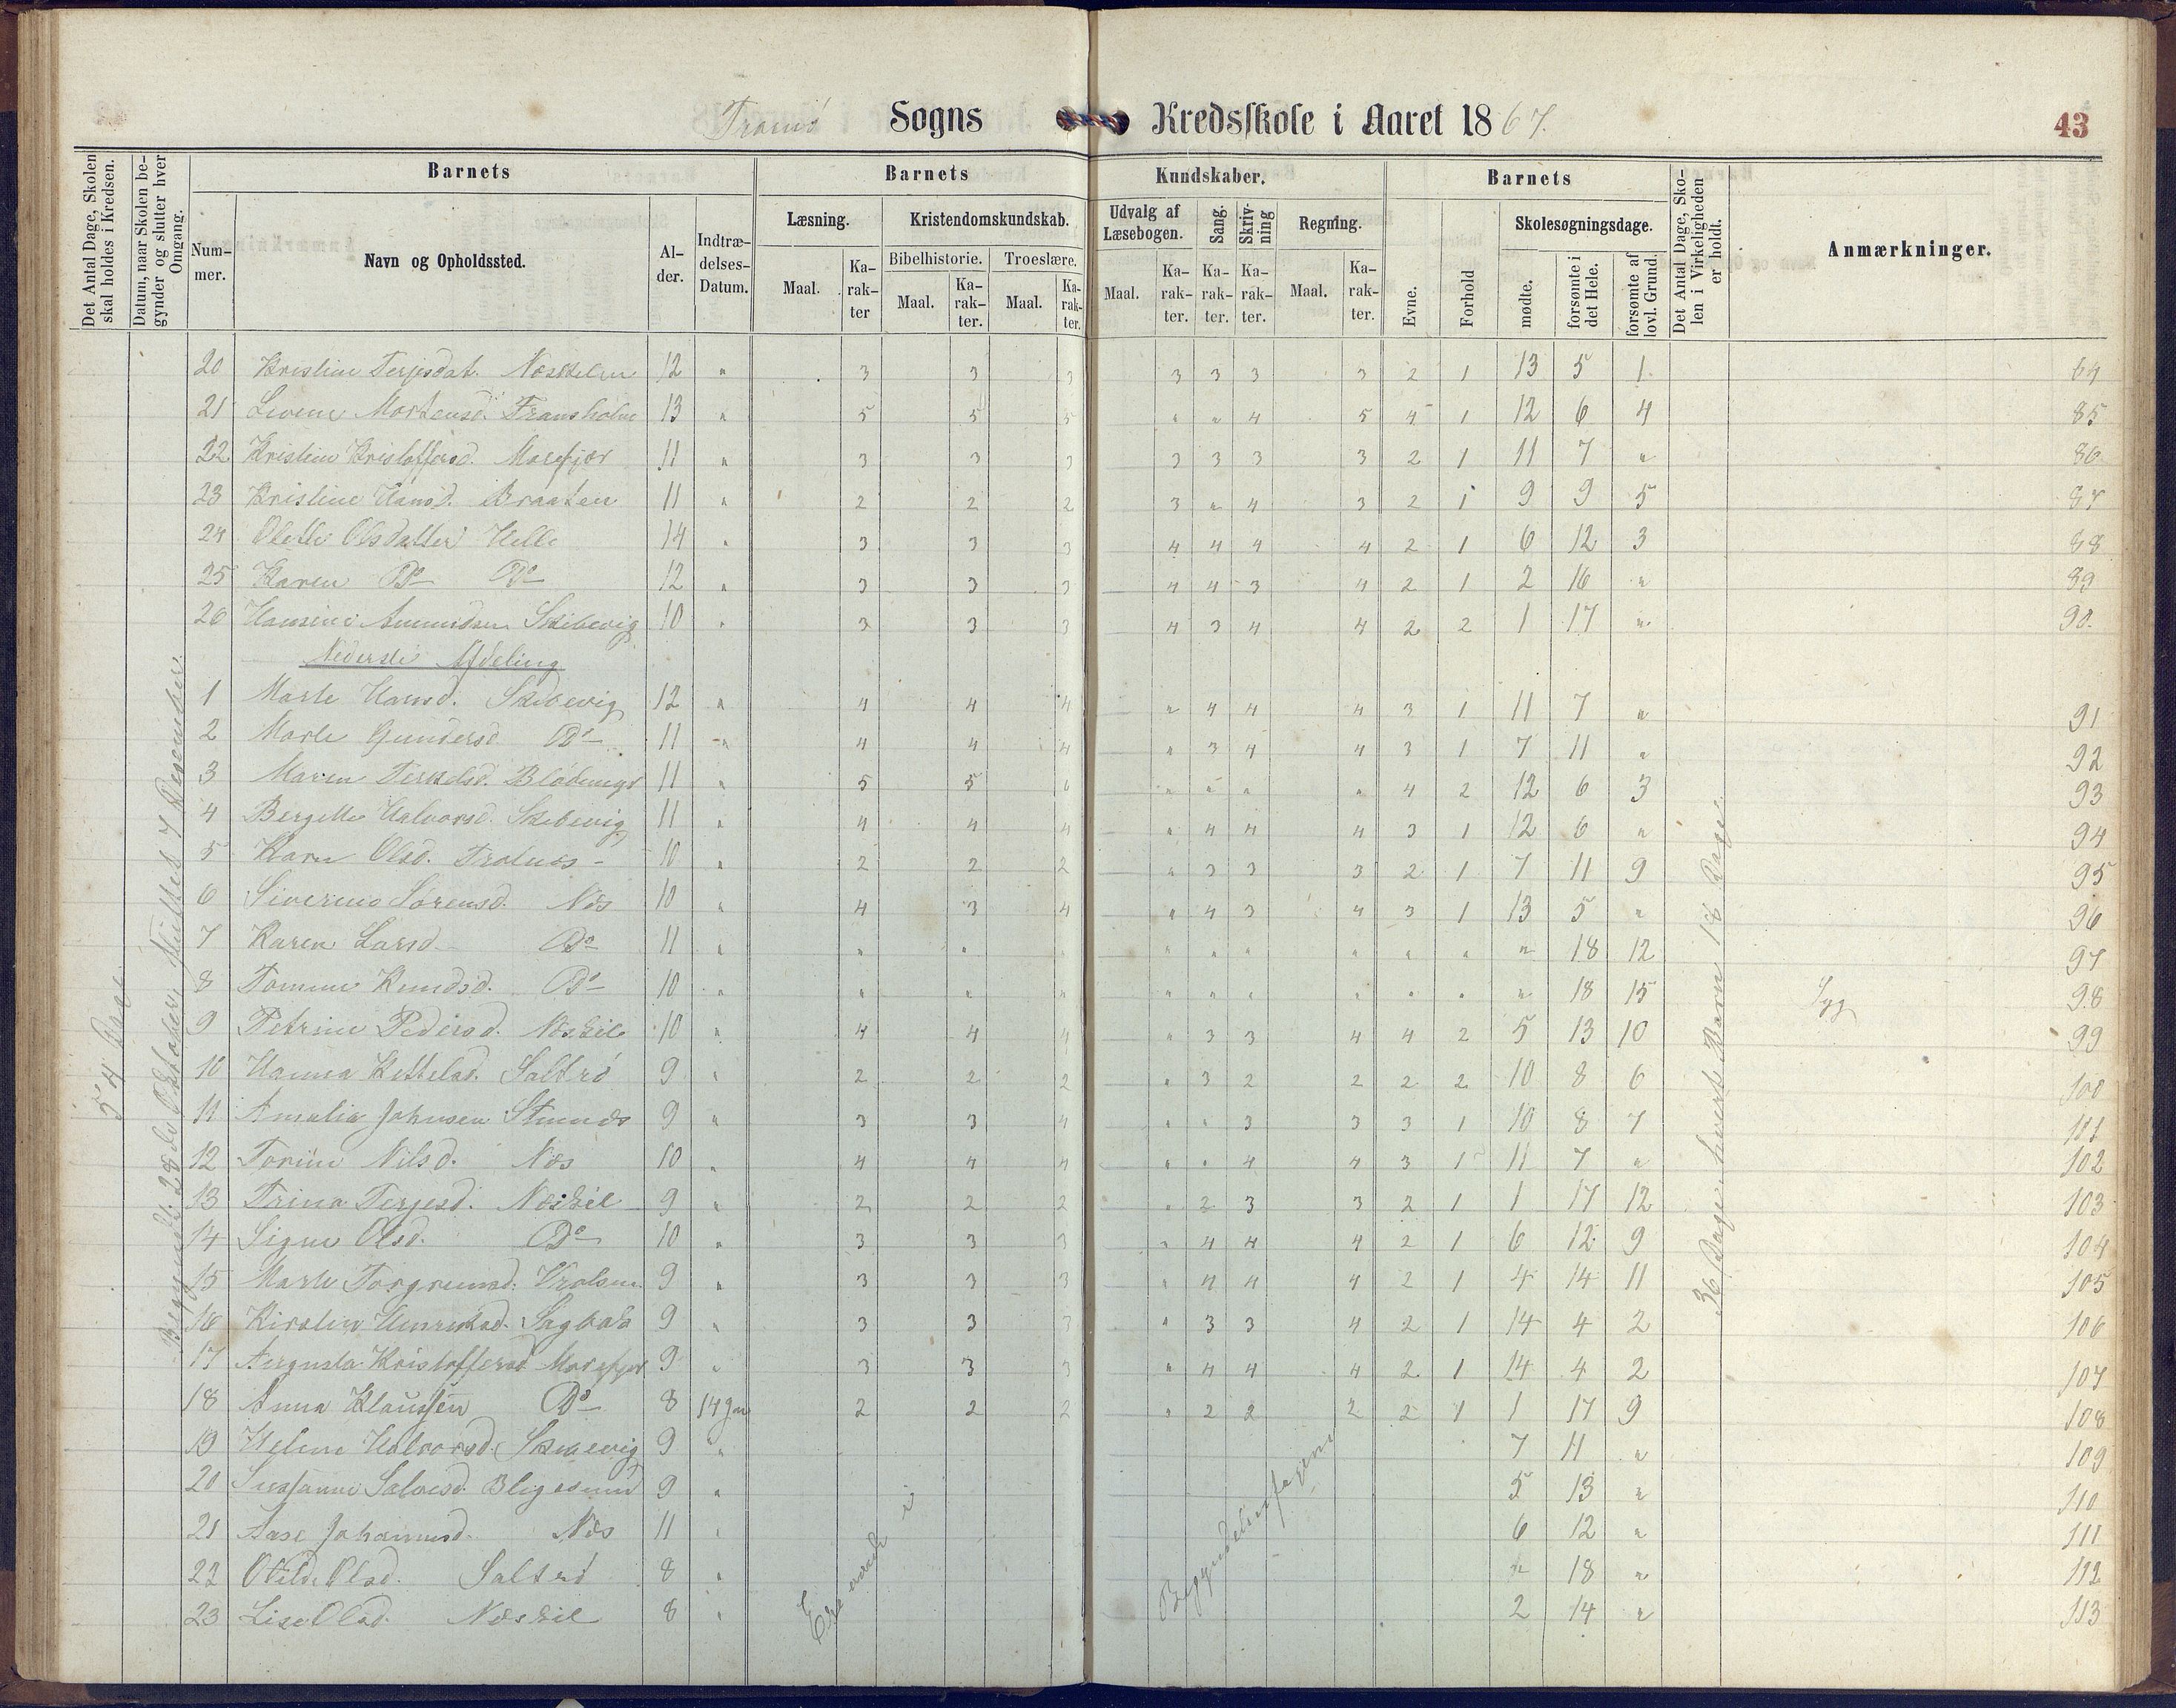 Tromö Sogns Kredsskole i Aaret 1867.
43
Det Antal Dage, Skolen skal holdes i Kredsen.
Datum, naar Skolen begynder og slutter hver Omgang.
Barnets
Barnets Kundskaber.
Barnets
Det Antal Dage, Skolen i Virkeligheden er holdt.
Anmærkninger.
Nummer.
Navn og Opholdssted.
Alder.
Indtrædelses-Datum.
Læsning.
Kristendomskundskab.
Udvalg af Læsebogen.
Sang.
Skrivning
Regning.
Evne.
Forhold
Skolesøgningsdage.
Bibelhistorie.
Troeslære.
Maal. Karakter Maal. Karakter. Maal. Karakter. Maal. Karakter. Karakter. Karakter. Maal. Karakter.
mødte.
forsømte i det Hele.
forsømte af lovl. Grund.
54 Dage
Begyndt 28de Oktober, sluttet 7 Desember.
36 Dage. hvert Barn 18 Dage.
20 Kristine Terjesdat. 12 " 3 3 3 3 3 3 3 2 1 13 5 1
21 Mortensd. 13 " 5 5 5 " " 4 5 4 1 12 6 4 85
22 Kristine Kristoffersd. Morefjær 11 " 3 3 3 3 3 3 3 2 1 11 7 " 86
23 Kristine Hansd. Braaten 11 " 2 2 2 3 " 4 3 2 1 9 9 5 87
24 Olette Olsdatter Helle 14 " 3 3 3 4 4 4 4 2 1 6 12 3 88
25 Karen Do Do 12 " 3 3 3 4 4 3 4 2 1 2 16 " 89
26 Hansine Amundsen Skibevig 10 " 3 3 3 4 3 4 4 2 2 1 17 " 90
Nederste Afdeling
1 Marte Hansd. Skibevig 12 " 4 4 4 " 4 4 4 3 1 11 7 " 91
2 Marte Gundersd. Do 11 " 4 4 4 " 3 4 4 3 1 7 11 " 92
3 Maren Terkelsd. 11 " 5 5 " " " " 4 2 12 6 3 93
4 Bergitte Halvorsd. Skibevig 11 " 4 4 4 " 4 4 4 3 1 12 6 " 94
5 Karen Olsd. 10 " 2 2 2 " 3 3 3 2 1 7 11 9 95
6 Sørensd. Næs 10 " 4 3 4 " 4 3 4 3 1 13 5 " 96
7 Karen Larsd. Do 11 " " " " " " " " " " 18 12 97
8 Tomine Knudsd. Do 10 " " " " " " " " " " " 18 15 Syg 98
9 Petrine Pedersd. Næskil 10 " 4 4 4 " 3 3 4 4 2 5 13 10 99
10 Hanna Kettelsd. Saltrö 9 " 2 2 2 " 3 2 2 2 2 10 8 6 100
11 Amalia Johnsen 9 " 3 3 4 " " 3 3 3 1 10 8 7 101
12 Torine Nilsd. Næs 10 " 4 4 4 " " 4 4 3 1 11 7 " 102
13 Trina Terjesd. Næskil 9 " 2 2 2 " 2 3 3 2 1 1 17 12 103
14 Signe Olsd. Do 10 " 3 3 3 " 4 4 4 2 1 6 12 9 104
15 Marte 9 " 3 3 3 " 4 4 4 2 1 4 14 11 105
16 9 " 3 3 3 " 3 3 4 2 1 14 4 2 106
17 Augusta Kristoffersd. Morefjær 9 " 3 3 3 " 4 4 4 2 1 14 4 2 107
18 Anna Klaussen Do 8 14 Jan 2 2 2 " 2 2 2 2 1 1 17 9 108
19 Helene Halvorsd. Skibevig 9 " 7 11 " 109
20 Susanne Salvesd. 9 " 5 13 " 110
21 Aase Johannesd. Næs 11 " 6 12 " 111
22 Otilde Olsd. Saltrö 8 " " 18 " 112
23 Lise Olsd. Næskil 8 " 2 14 " 113
Ere endnu i Begyndelsesfagene